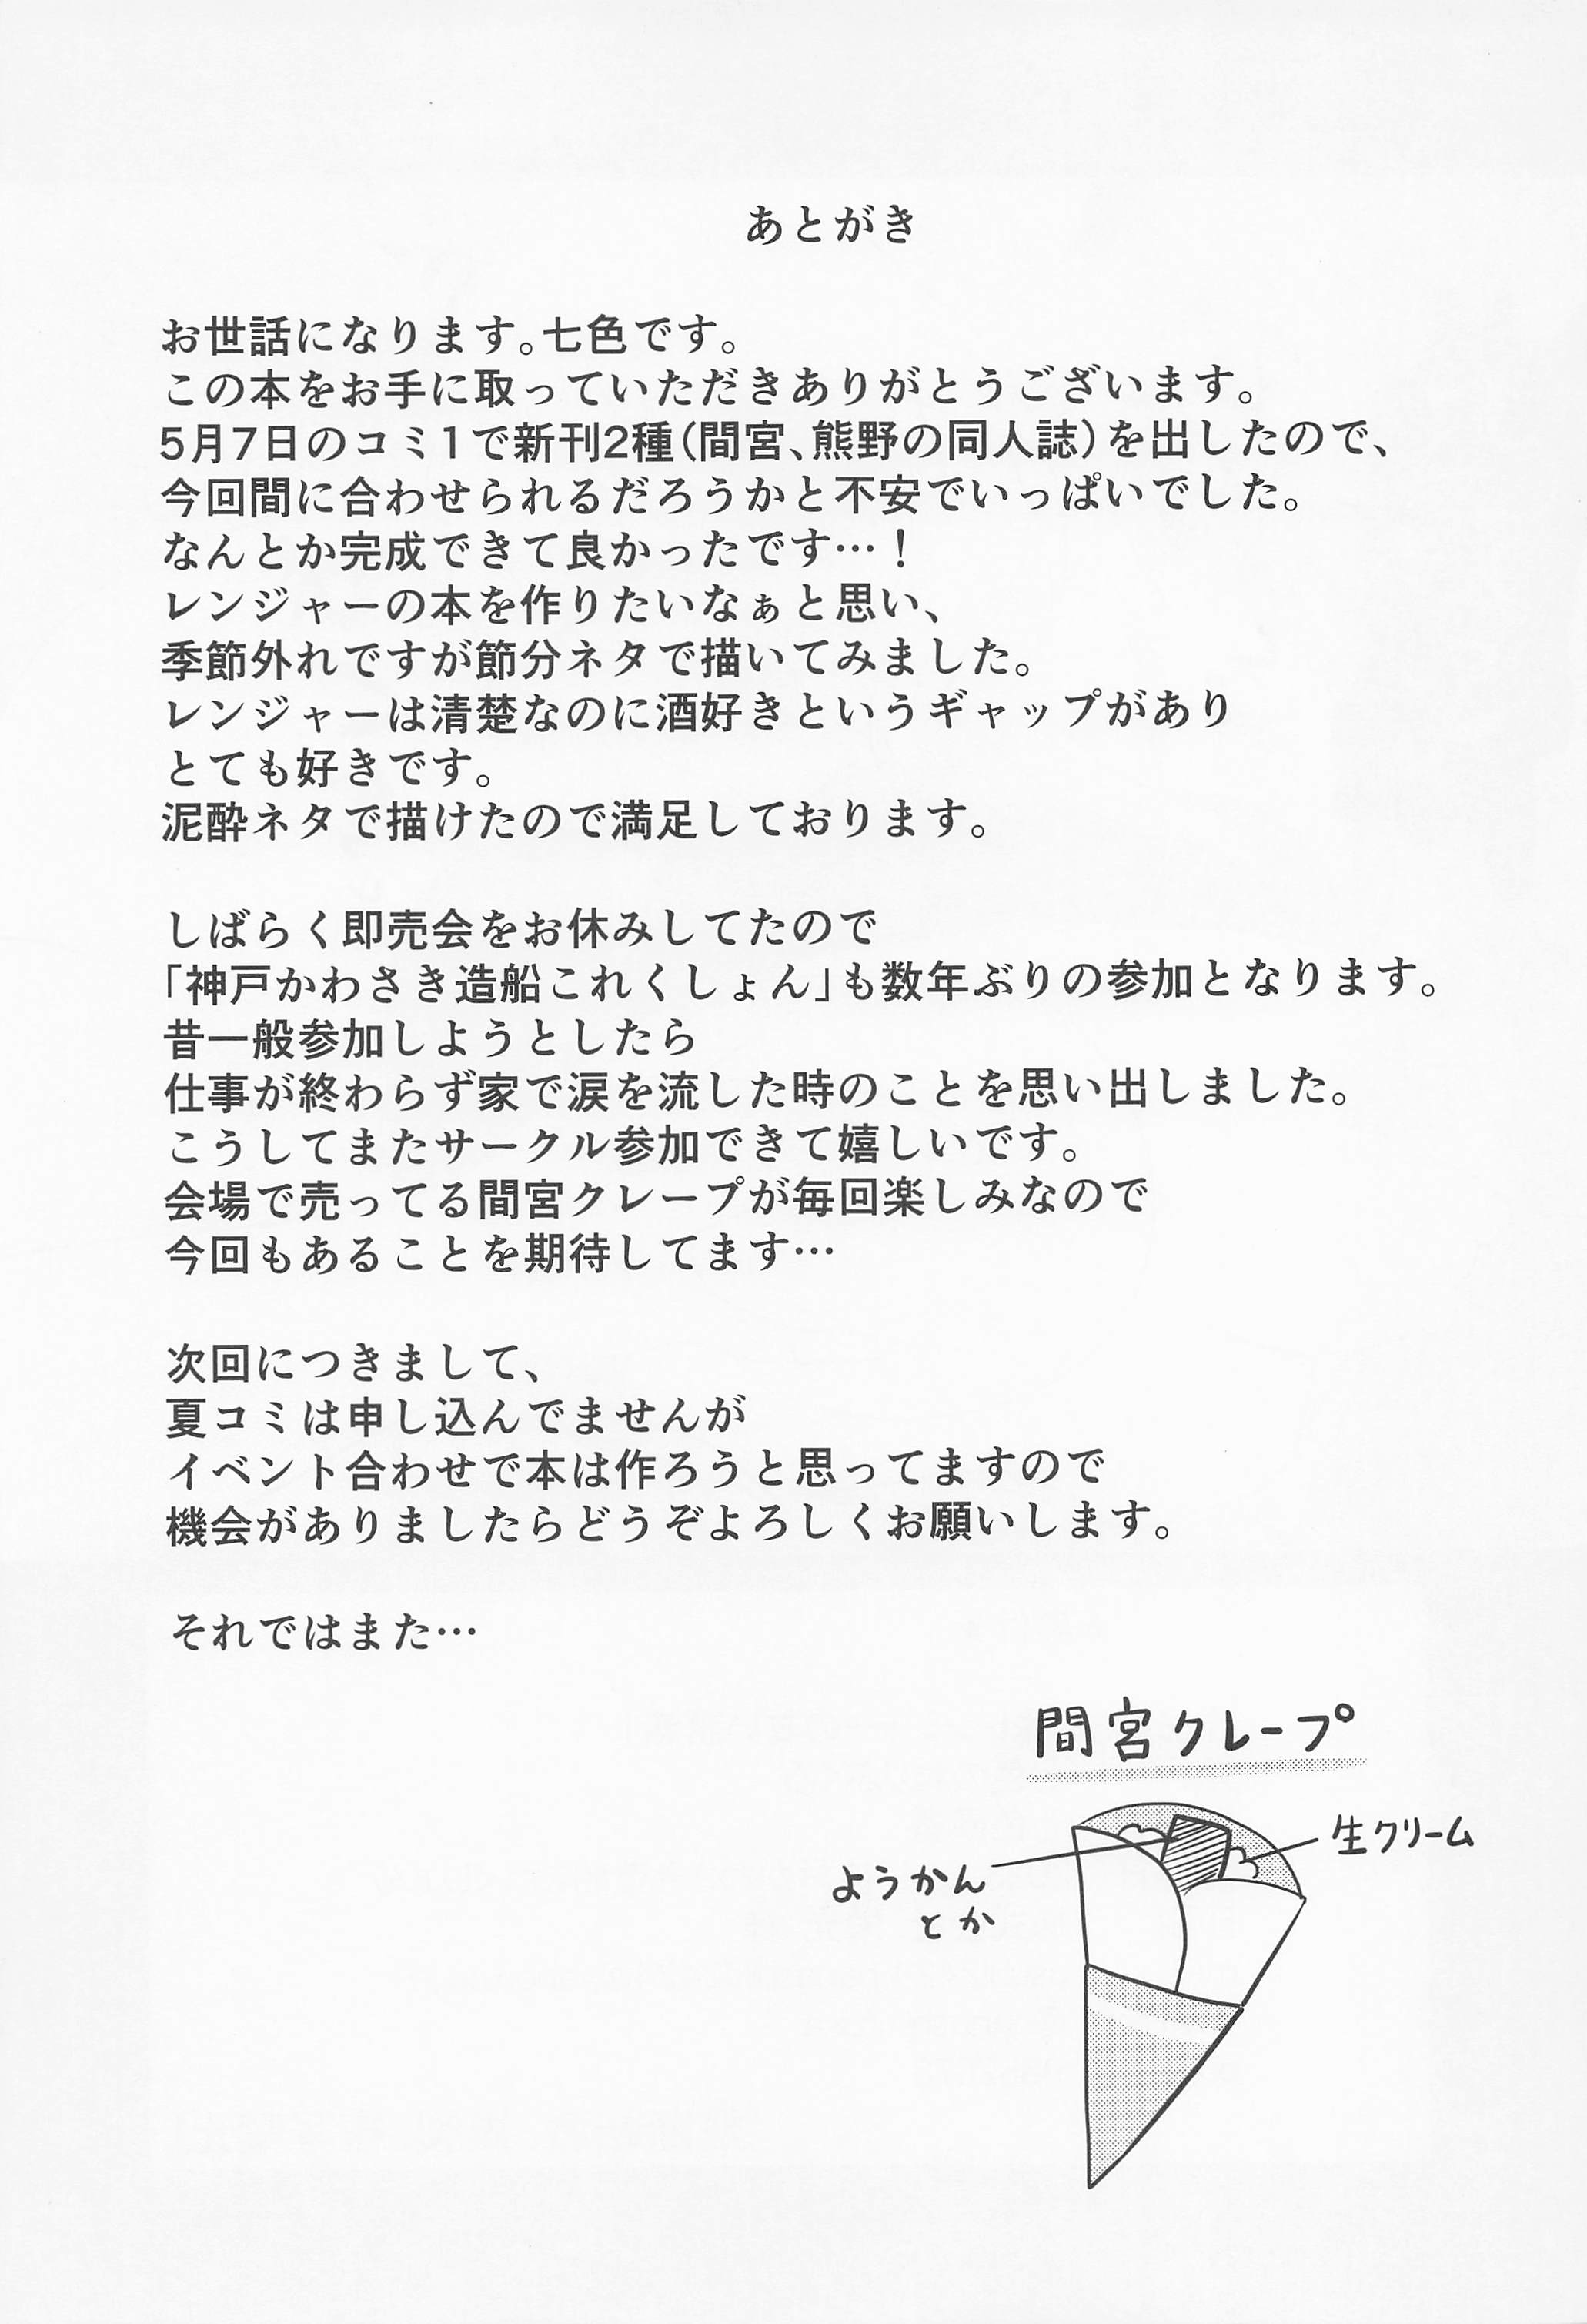 あとがき
お世話になります。七色です。
この本をお手に取っていただきありがとうございます。
5月7日のコミ1で新刊2種(間宮、熊野の同人誌)を出したので、
今回間に合わせられるだろうかと不安でいっぱいでした。
なんとか完成できて良かったです…!
レンジャーの本を作りたいなぁと思い、
季節外れですが節分ネタで描いてみました。
レンジャーは清楚なのに酒好きというギャップがあり
とても好きです。
泥酔ネタで描けたので満足しております。
しばらく即売会をお休みしてたので
「神戸かわさき造船これくしょん」も数年ぶりの参加となります。
昔一般参加しようとしたら
仕事が終わらず家で涙を流した時のことを思い出しました。
こうしてまたサークル参加できて嬉しいです。
会場で売ってる間宮クレープが毎回楽しみなので
今回もあることを期待してます…
次回につきまして、
夏コミは申し込んでませんが
イベント合わせで本は作ろうと思ってますので
機会がありましたらどうぞよろしくお願いします。
それではまた…
間宮クレープ
生クリーム
ようかん
とか